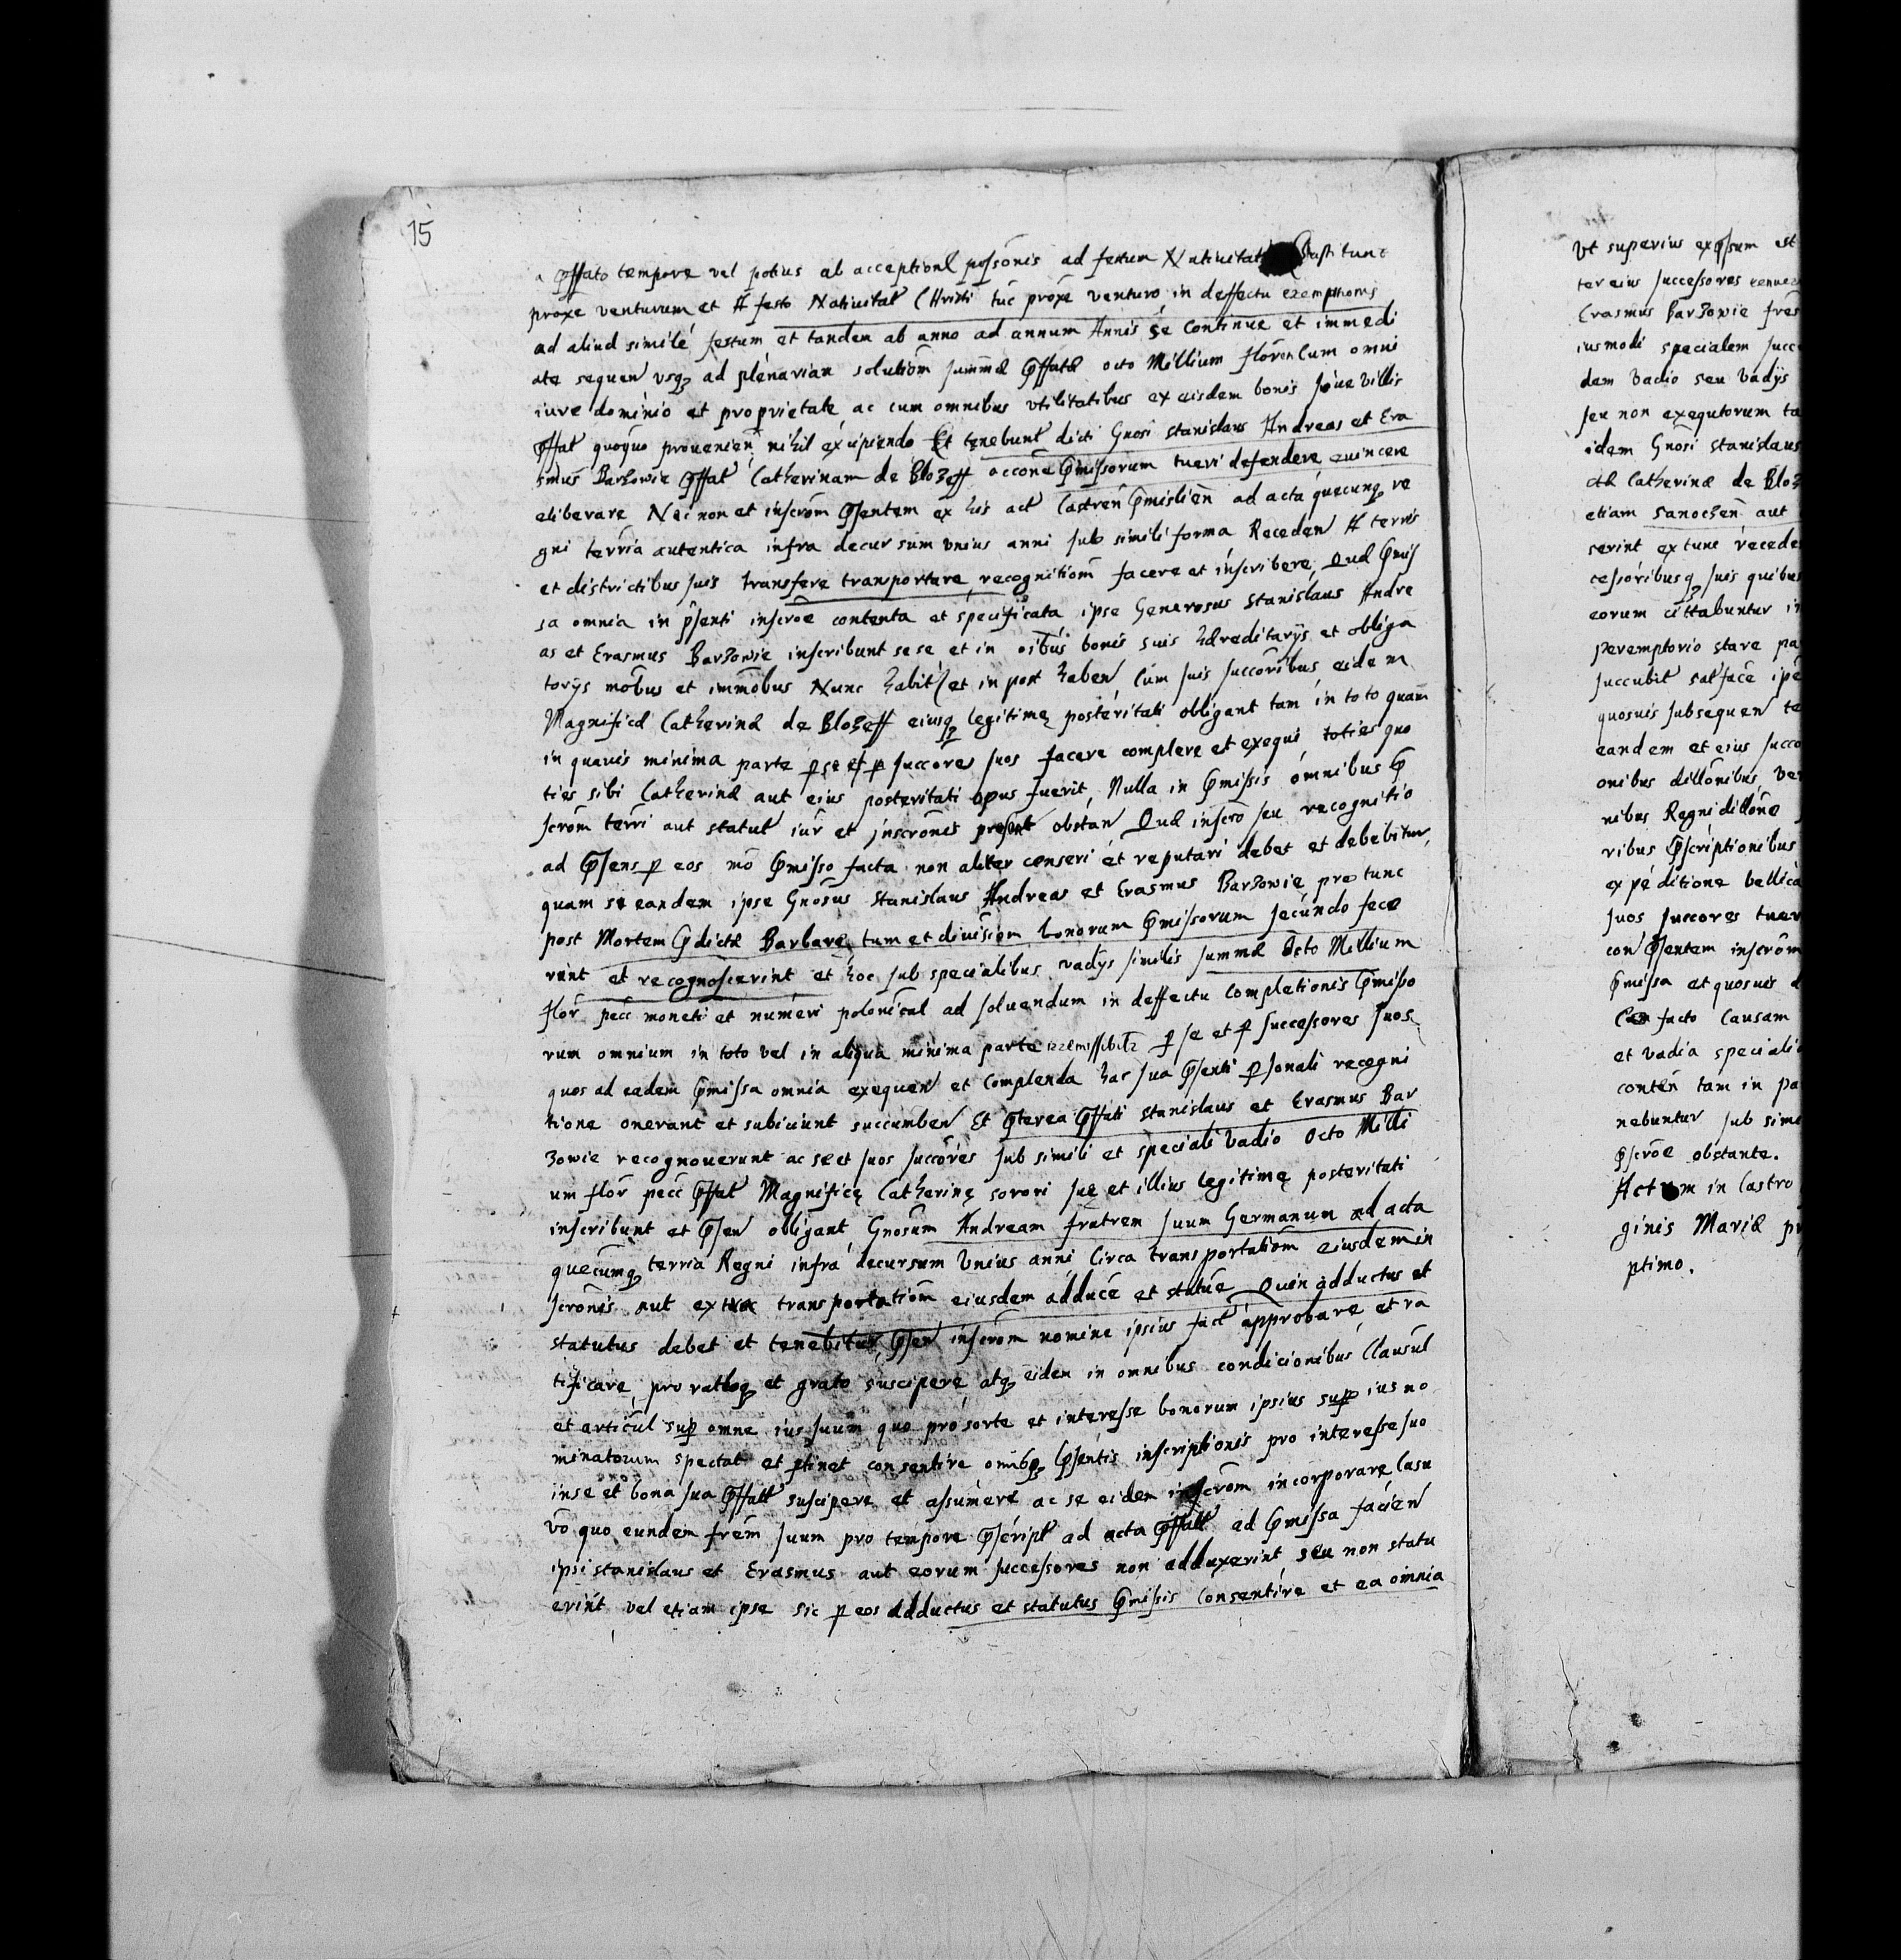 15
p̄ffato tempore vel potius ab acceptione possōnis ad festum Natiuitat Christi tunc
proxe venturum et A festo Natiuitat Christi tūc proxe venturo in deffectu exempthonis
ad aliud simile festum et tandem ab anno ad annum Annis se Continue et immedi
ate sequen vsqꝫ ad plenariam solutiom summæ p̄ffatæ octo Millium florenlum omni
iure dominio et proprietate ac cum omnibus vtilitatibus ex eisdem bonis siue villis
p̄ffat quoquo prouenien nihil excipiendo Et tenebunt dicti Gnosi Stanislaus Andreas et Era
smus Barzowie p̄ffat Catherinam de Blozeff accone p̄missorum tueri defendere euincere
eliberare Nec non et inscrom p̄sentem ex his act Castren p̄mislien ad acta quecunqꝫ re
gni terria autentica infra decursum vnius anni sub simili forma Receden A terris
et districtibus suis transfere transportare recognitiom facere et inscribere, Quæ p̄mis
sa omnia in p̄senti inscroe contenta et specificata ipse Generosus Stanislaus Andre
as et Erasmus Barzowie inscribunt sese et in oibus bonis suis hæreditarÿs et obliga
torÿs mobus et immobus Nunc habit et in post haben Cum suis succoribus eidem
Magnificæ Catherinæ de Blozeff eiusqꝫ legitimę posteritati obligant tam in toto quam
in quauis minima parte ꝑ se et ꝑ succores suos facere complere et exequi toties quo
ties sibi Catherinæ aut eius posteritati opus fuerit, Nulla in p̄missis omnibus p̄
scrom terri aut statut iur et inscronis present obstan Quæ inscro seu recognitio
ad p̄sens ꝑ eos mō p̄misso facta non aliter censeri et reputari debet et debebitur,
quam si eandem ipse Gnosus Stanislaus Andreas et Erasmus Barzowie pro tunc
post Mortem p̄dictæ Barbarę tum et diuisiom bonorum p̄missorum secundo fece
rint et recognoscerint et hoc sub specialibus vadÿs similis summæ Octo Millium
flor pecc moneti et numeri polonical ad soluendum in deffectu Completionis p̄misso
rum omnium in toto vel in aliqua minima parte irremissibilr ꝑ se et ꝑ successores suos
quos ad eadem p̄missa omnia exequen et Complenda hac sua p̄senti ꝑsonali recogni
tione onerant et subiciunt succumben Et p̄terea p̄ffati Stanislaus et Erasmus Bar
zowie recognouerunt ac se et suos succores sub simili et speciali vadio Octo Milli
um flor pecc p̄ffat Magnificę Catherinę sorori suę et illius legitimę posteritati
inscribunt et p̄sen obligant Gnosum Andream fratrem suum Germanum ad acta
quecumqꝫ terria Regni infra decursum Vnius anni Circa transportatiom eiusdem in
scronis aut extra transportatiom eiusdem adduce et statue Quin adductus et
statutus debet et tenebitur p̄sen inscrom nomine ipsius fact approbare, et ra
tificare, pro ratoqꝫ et grato suscipere atqꝫ eidem in omnibus condicionibus Clausul
et articul sup omne ius suum quo pro sorte et interesse bonorum ipsius sup ius no
minatorum spectat et ꝑtinet consentire omibqꝫ p̄sentis inscriptionis pro interesse suo
in se et bona sua p̄ffatt suscipere et assumere ac se eidem inscrom incorporare Casu
vō quo eundem frem suum pro tempore p̄script ad acta p̄ffatt ad p̄missa facien
ipsi Stanislaus et Erasmus aut eorum successores non adduxerint seu non statu
erint vel etiam ipse sic ꝑ eos adductus et statutus p̄missis Consentire et ea omnia
Vt superius exp̄sum est
ter eius successores
Erasmus Barzowie fres
iusmodi specialem succ
dem Vadio seu Vadÿs
seu non exequtorum ta
idem Gnosi Stanislaus
Catherinæ de Bloz
etiam Sanocen aut
serint extunc recede
cessoribusqꝫ suis quibus
eorum cittabuntur in
peremptorio stare pa
succubit satface ipe
quosuis subsequen te
eandem et eius succo
onibus dillonibus, ve
nibus Regni dillone
ribus p̄scriptionibus
expeditione bellica
suos succores tuer
con p̄sentem inscrom
p̄missa et quosuis d
facto Causam
et vadia speciali
conten tam in pa
nebuntur sub simi
p̄scroe obstante.
Actum in Castro
ginis Mariæ pr
ptimo.